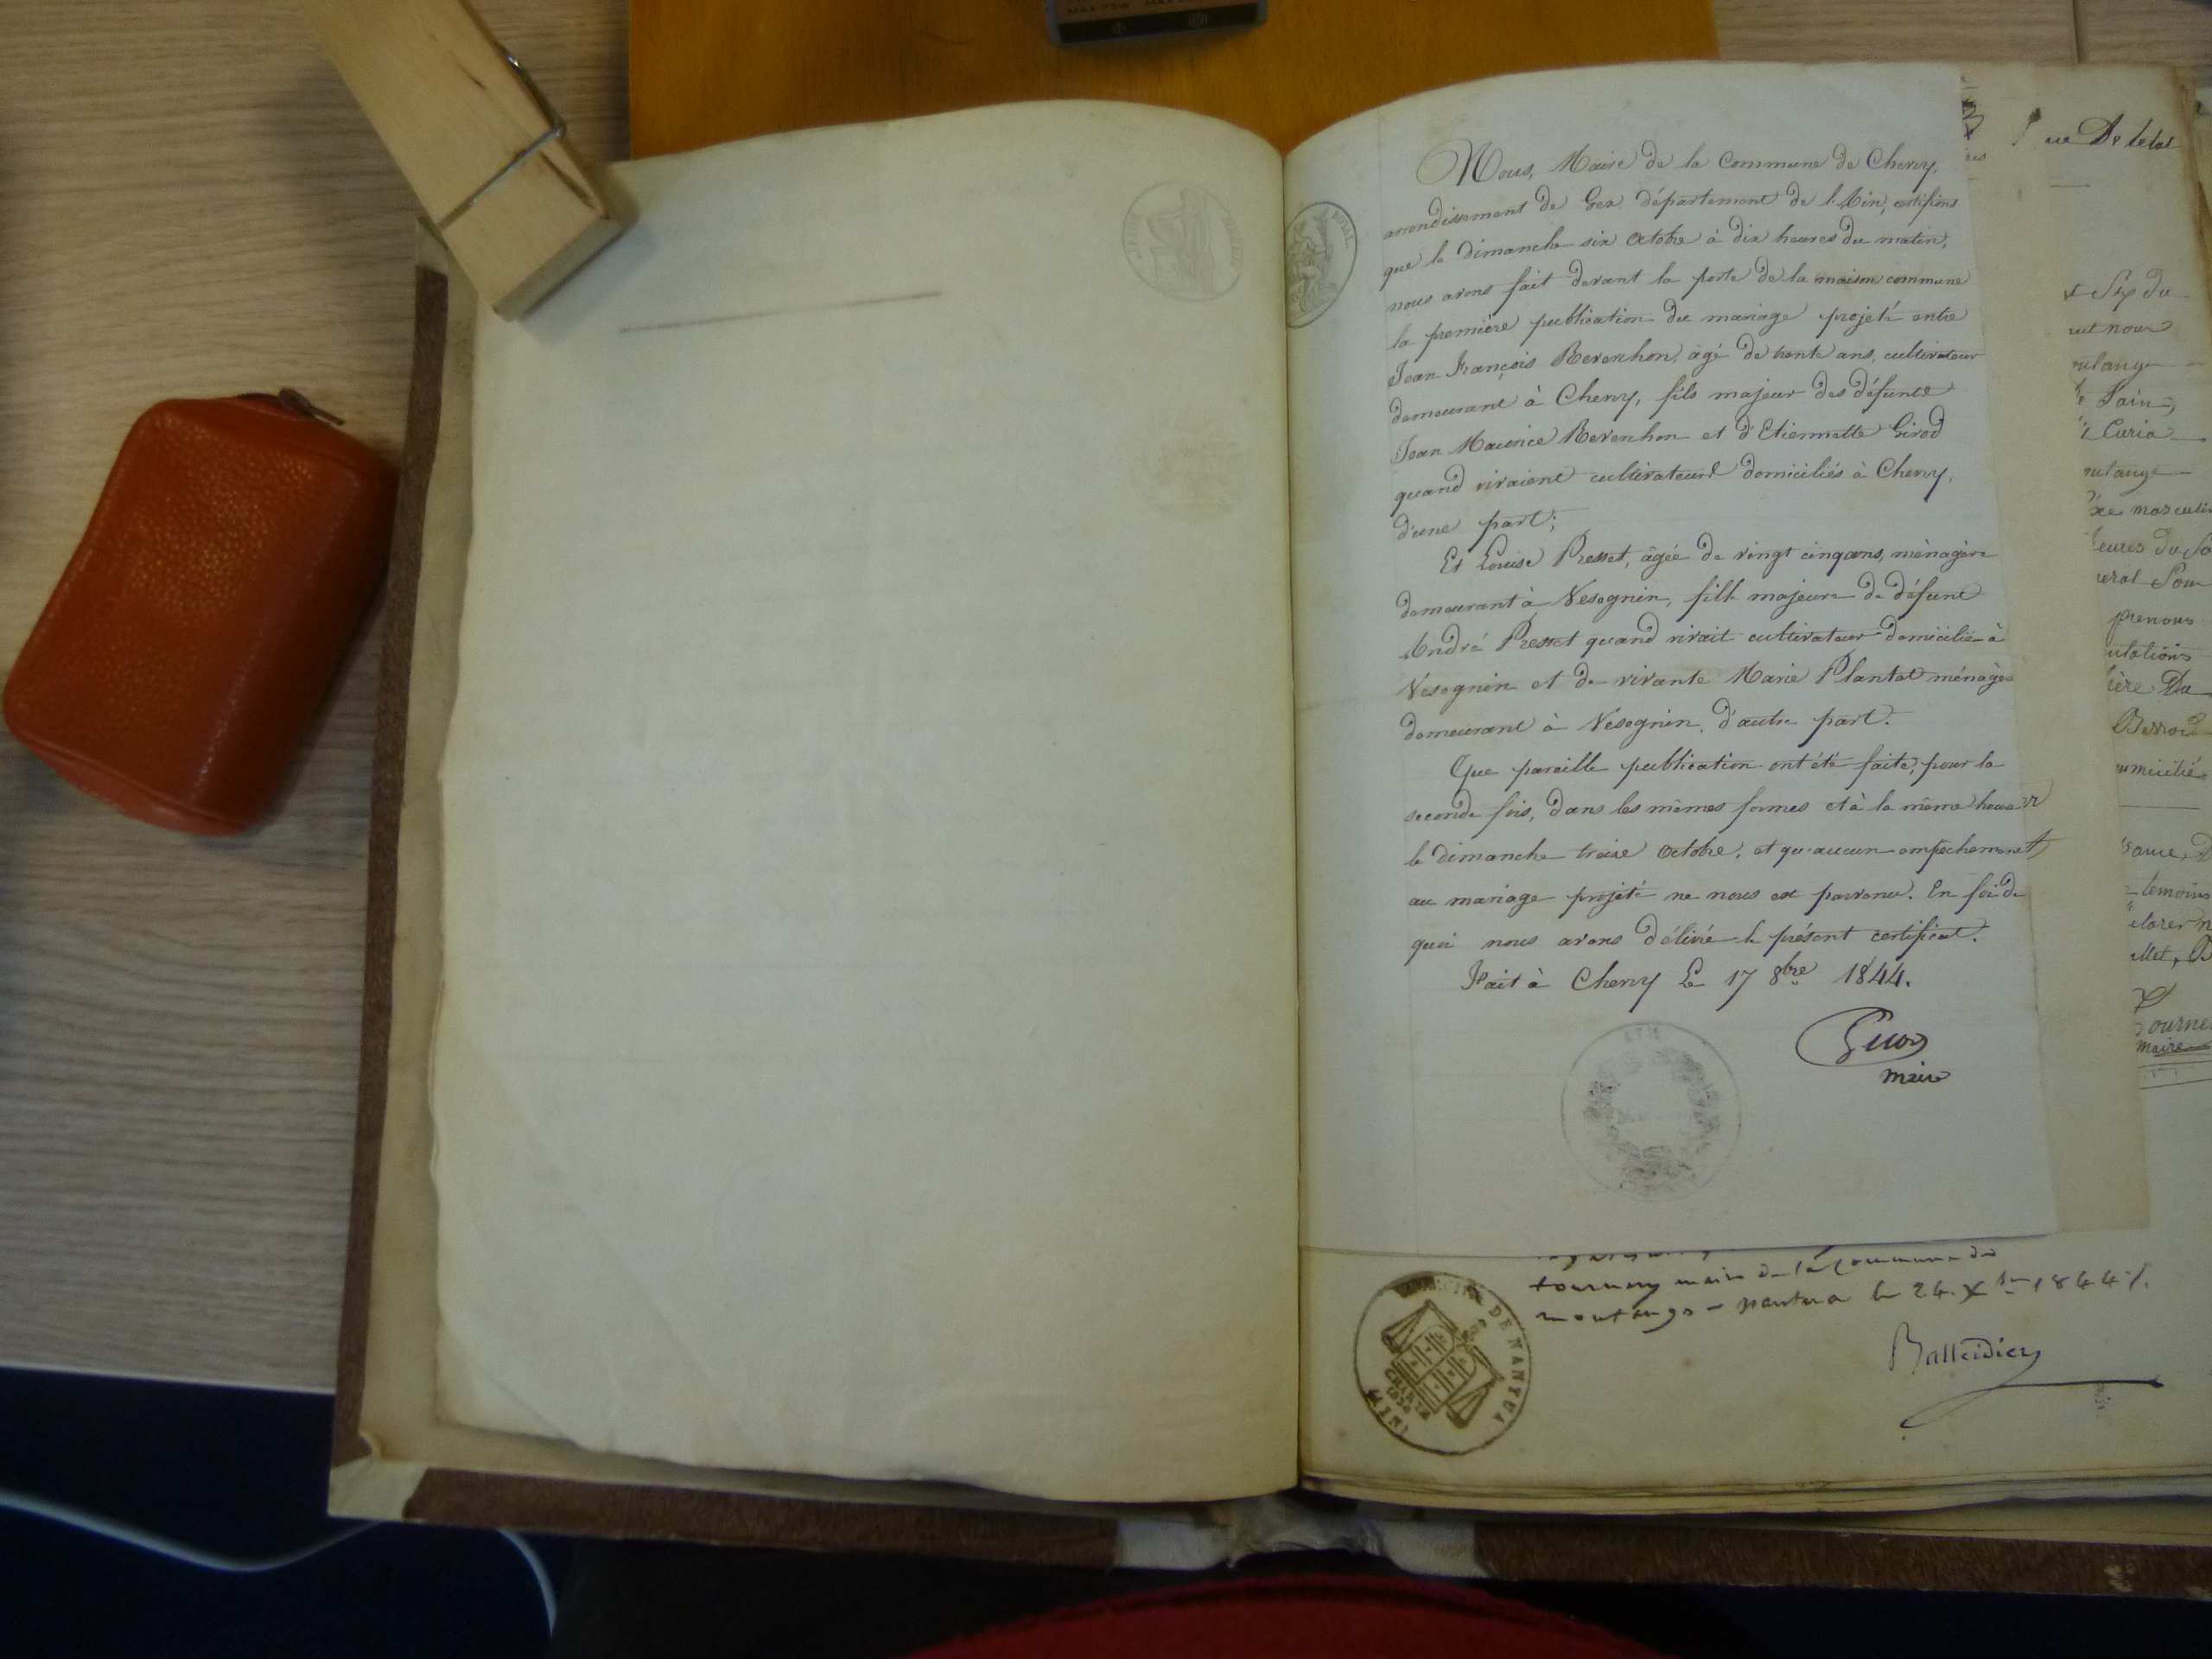 Nous, Maire de la Commune de Chevry,
arrondissement de Gex département de l'Ain, certifions
que le dimanche six Octobre à dix heures du matin,
nous avons fait devant la porte de la maison commune
la première publication du mariage projeté entre
Jean François Reverchon, âgé de trente ans, cultivateur
demeurant à Chevry, fils majeur des défunts
Jean Maurice Reverchon et d'Etiennette Girod
quand vivaient cultivateurs domiciliés à Chevry,
d'une part;
Et Louise Presset, âgée de vingt cinq ans, ménagère
demeurant à Vesegnin, fille majeure de défunt
André Presset quand vivait cultivateur domicilié à
Vesegnin et de vivante Marie Plantat ménagè
demeurant à Vesegnin, d'autre part.
Que pareille publication ont été faite, pour la
seconde fois, dans les mêmes formes et à la même heure
le dimanche treize Octobre, et qu'aucun empêchement
au mariage projeté ne nous est parvenu. En foi de
quoi nous avons délivré le présent certificat.
Fait à Chevry Le 17 8bre 1844.
maire
ROYAL
tournery maire de la Commune de
montange - nantua le 24. Xbre 1844
DE NANTUA
CHARTE
1830
(AIN)
Balleidier
ue De
x Sep du
nous
Curia
masculin
heures du So
prenous
Du
temoins
maire